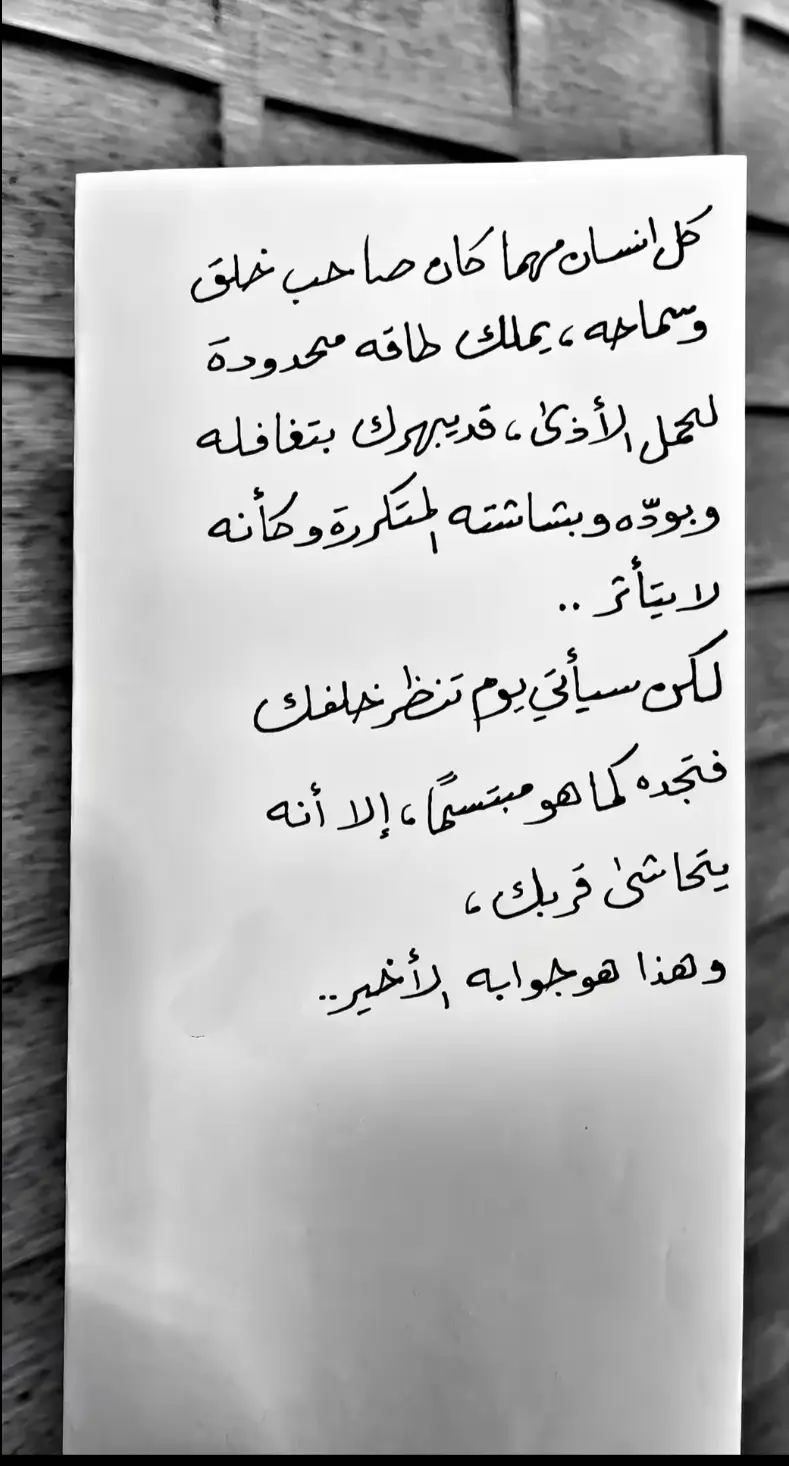 كل انسان مهما كان صاحب خلق
وسماحه، يملك طاقه محدودة
لتحمل الأذىٰ، قد يبهرك بتغافله
وبودّه وبشاشته المتكررة وكأنه
لا يتأثر ..
لكن سيأتي يوم تنظر خلفك
فتجده كما هو مبتسمًا، إلا أنه
يتحاشىٰ قربك،
وهذا هو جوابه الأخير..